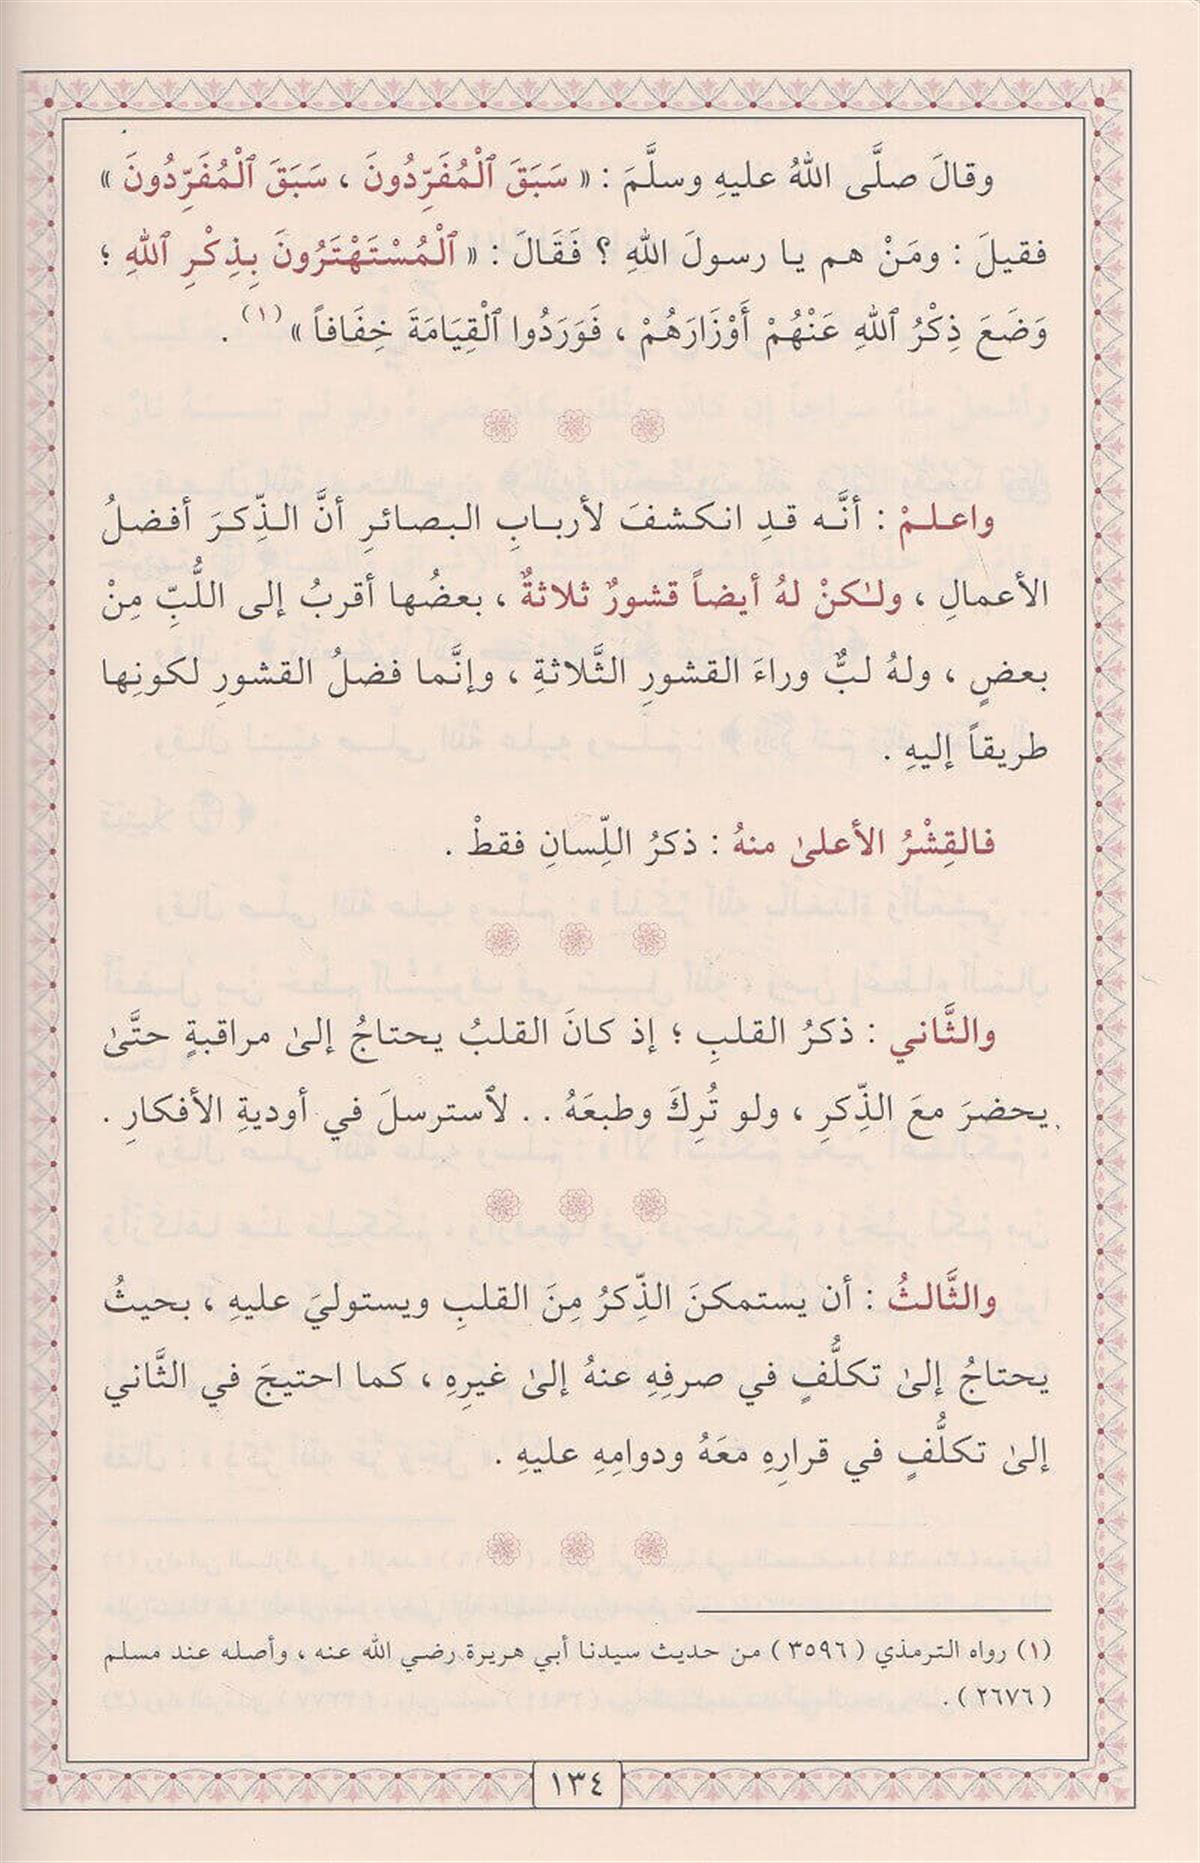 وقالَ صلَّى اللهُ عليهِ وسلَّمَ : « سَبَقَ ٱلْمُفَرِّدُونَ ، سَبَقَ ٱلْمُفَرِّدُونَ »
فقيلَ : ومَنْ هم يا رسولَ اللهِ ؟ فَقَالَ : « ٱلْمُسْتَهْتَرُونَ بِذِكْرِ ٱللهِ ؛
وَضَعَ ذِكْرُ ٱللهِ عَنْهُمْ أَوْزَارَهُمْ ، فَوَرَدُوا ٱلْقِيَامَةَ خِفَافاً » (١) .
واعلمْ : أنَّه قدِ انكشفَ لأربابِ البصائرِ أنَّ الذِّكرَ أفضلُ
الأعمالِ ، ولـٰكنْ لهُ أيضاً قشورٌ ثلاثةٌ ، بعضُها أقربُ إلى اللُّبِّ مِنْ
بعضٍ ، ولهُ لبٌّ وراءَ القشورِ الثَّلاثةِ ، وإنَّما فضلُ القشورِ لكونِها
طريقاً إليهِ .
فالقِشْرُ الأعلىٰ منهُ : ذكرُ اللِّسانِ فقطْ .
والثَّاني : ذكرُ القلبِ ؛ إذ كانَ القلبُ يحتاجُ إلىٰ مراقبةٍ حتَّىٰ
يحضرَ معَ الذِّكرِ ، ولو تُرِكَ وطبعَهُ . . لاسترسلَ في أوديةِ الأفكارِ .
والثَّالثُ : أن يستمكنَ الذِّكرُ مِنَ القلبِ ويستوليَ عليهِ ، بحيثُ
يحتاجُ إلىٰ تكلُّفٍ في صرفِهِ عنهُ إلىٰ غيرِهِ ، كما احتيجَ في الثَّاني
إلىٰ تكلُّفٍ في قرارِهِ معَهُ ودوامِهِ عليهِ .
(١) رواه الترمذي ( ٣٥٩٦ ) من حديث سيدنا أبي هريرة رضي الله عنه ، وأصله عند مسلم
( ٢٦٧٦ ) .
١٣٤